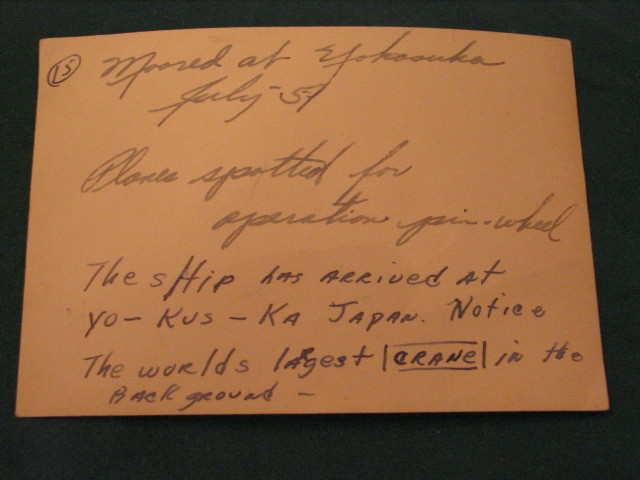 15 Moored at Yokosuka
July 51
Planes spotted for
operation pin-wheel
The sHip has arrived at
YO-KUS-KA JAPAN. Notice
The worlds largest |CRANE| in the
Back ground -